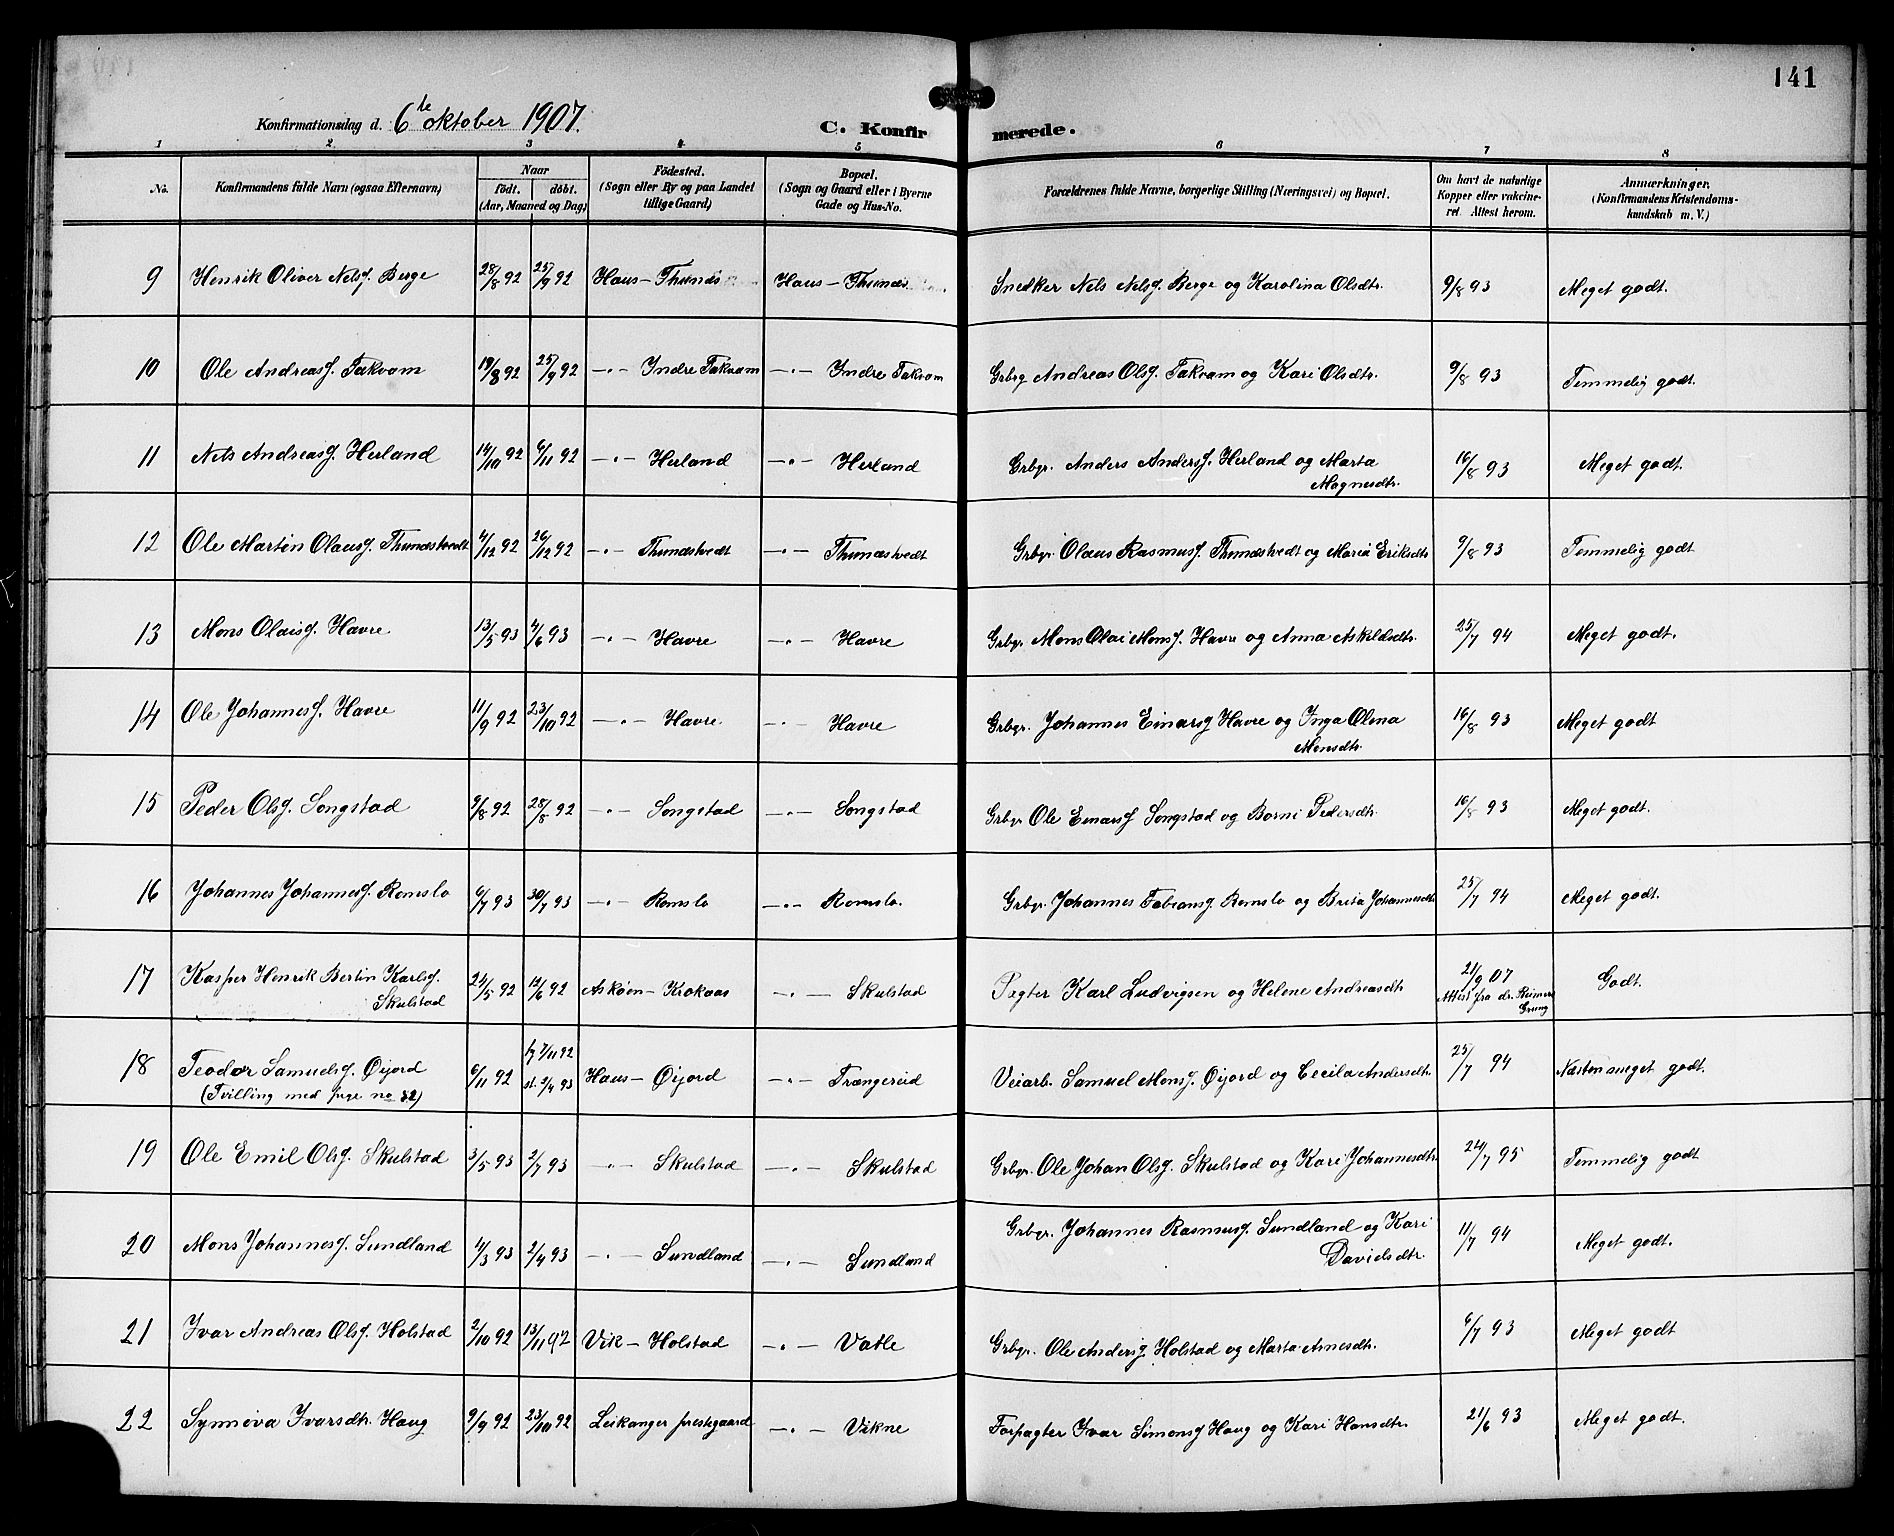 141
Konfirmationsdag d. 6te oktober 1907.
C. Konfirmerede.
1 2 3 4 5 6 7 8
No.
Konfirmandens fulde Navn (ogsaa Efternavn)
Naar
født. døbt.
(Aar, Maaned og Dag)
Fødested.
(Sogn eller By og paa Landet
tillige Gaard)
Bopæl.
(Sogn og Gaard eller i Byerne
Gade og Hus-No.
Forældrenes fulde Navne, borgerlige Stilling (Næringsvei) og Bopæl.
Om havt de naturlige
Kopper eller vakcine-
ret. Attest herom.
Anmærkninger.
(Konfirmandens Kristendoms-
kundskab m. V.)
9 Henrik Oliver Nelsf. Berge 28/8 92 25/9 92 Haus - Thunæs Haus - Thunæs Snedker Nels Nelsf. Berge og Karolina Olsdtr. 9/8 93 Meget godt.
10 Ole Andreasf. Takvam 19/8 92 25/9 92 -"- Indre Takvam -"- Indre Takvam Grbrg Andreas Olsf. Takvam og Kari Olsdtr. 9/8 93 Temmelig godt.
11 Nels Andreasf. Herland 14/10 92 6/11 92 -"- Herland -"- Herland Grbgr. Anders Andersf. Herland og Marta
Magnesdtr. 16/8 93 Meget godt.
12 Ole Martin Olausf. Thunæstvedt 4/12 92 26/12 92 -"- Thunæstvedt -"- Thunæstvedt Grbgr. Olaus Rasmusf. Thunæstvedt og Maria Eriksdtr 9/8 93 Temmelig godt
13 Mons Olaisf. Havre 13/5 93 4/6 93 -"- Havre -"- Havre Grbgr. Mons Olai Monsf. Havre og Anna Askeldsdtr. 25/7 94 Meget godt.
14 Ole Johannesf. Havre 11/9 92 23/10 92 -"- Havre. -"- Havre Grbgr. Johannes Einarsf Havre og Inga Olina
Monsdtr. 16/8 93 Meget godt
15 Peder Olsf. Songstad 9/8 92 28/8 92 -"- Songstad -"- Songstad Grbgr Ole Einarsf Songstad og Borni Pedersdtr. 16/8 93 Meget godt.
16 Johannes Johannesf. Romslo 6/7 93 30/7 93 -"- Romslo -"- Romslo. Grbgr. Johannes Fabiansf. Romslo og Brita Johannesdtr. 25/7 94 Meget godt.
17 Kasper Henrik Bertin Karlsf.
Skulstad 24/5 92 12/6 92 Askøen - Krokaas -"- Skulstad Pagter Karl Ludvigsen og Helene Andreasdtr 21/9 07
Attest fra dr. Reimers
Grung Godt.
18 Teodor Samuelsf. Øijord
(Tvilling med pige no 32) 6/11 92 7/11 92
st. 2/4 93 Haus - Øijord -"- Trængereid Veiarb. Samuel Monsf. Øijord og Cecilia Andersdtr. 25/7 94 Næsten meget godt.
19 Ole Emil Olsf. Skulstad 3/5 93 2/7 93 -"- Skulstad -"- Skulstad Grbgr. Ole Johan Olsf. Skulstad og Kari Johannesdtr. 24/7 95 Temmelig godt
20 Mons Johannesf. Sundland 4/3 93 2/4 93 -"- Sundland -"- Sundland Grbgr. Johannes Rasmusf. Sundland og Kari
Davidsdtr. 11/7 94 Meget godt.
21 Ivar Andreas Olsf. Holstad 2/10 92 13/11 92 Vik - Holstad -"- Vatle Grbgr. Ole Andersf Holstad og Marta Arnesdtr. 6/7 93 Meget godt
22 Synnøva Ivarsdtr. Haug 9/9 92 23/10 92 Leikanger prestegaard -"- Vikne Forpagter Ivar Simonsf Haug og Kari Hansdtr. 21/6 93 Meget godt.